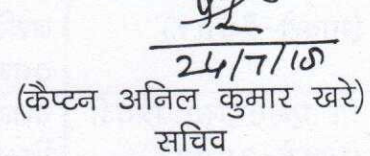 24/7/15
(कैप्टन अनिल कुमार खरे)
सचिव